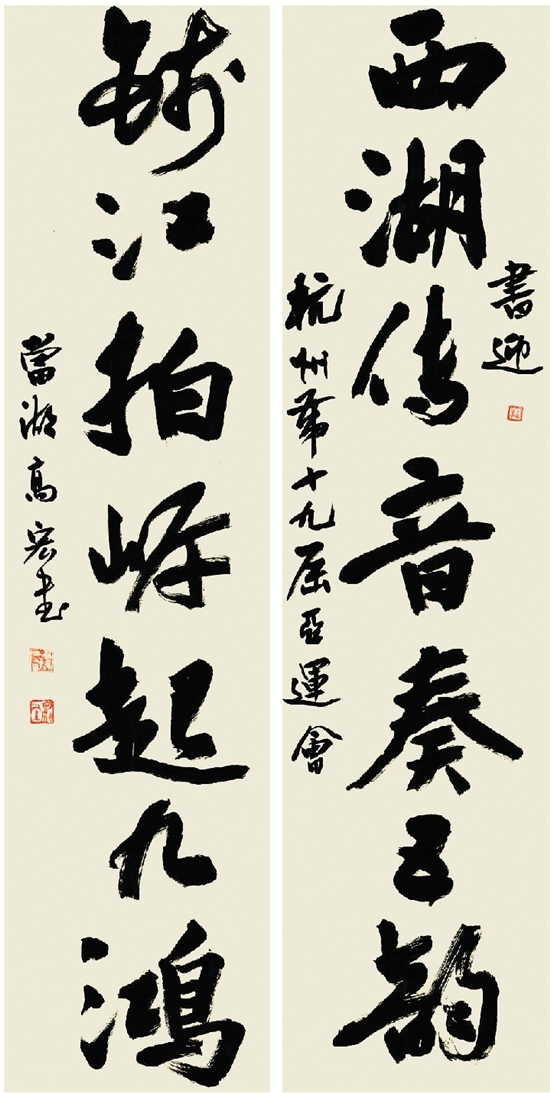 書迎
西湖传音奏五韵
杭州第十九届亚運會
錢江拍岸起九鴻
當湖高宏書